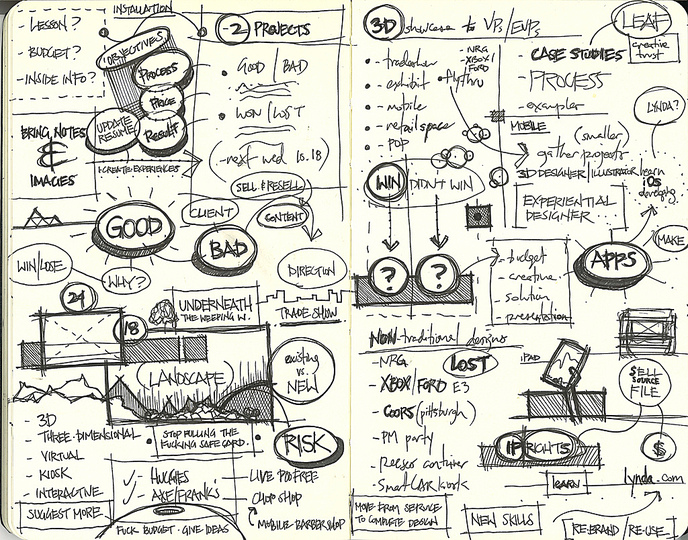 - LESSON?
- BUDGET?
- INSIDE INFO?
INSTALLATION
OBJECTIVES
PROCESS
PRICE
RESULT
UPDATE
RESUME
BRING NOTES
&
IMAGES
CREATE EXPERIENCES
-2 PROJECTS
GOOD / BAD
WON / LOST
-next wed 10.18
SELL & RESELL
CLIENT
CONTENT
GOOD
BAD
WIN/LOSE
WHY?
DIRECTION
24
18
UNDERNEATH
THE WEEPING W.
TRADE SHOW
LANDSCAPE
existing
vs.
NEW
RISK
- 3D
- THREE-DIMENSIONAL
- VIRTUAL
- KIOSK
- INTERACTIVE
SUGGEST MORE
STOP PULLING THE
FUCKING SAFE CARD.
HUGGIES
AXE/FRANKS
LIVE PROFREE
CHOP SHOP
MOBILE BARBERSHOP
FUCK BUDGET - GIVE IDEAS
3D showcase to VPs/EVPs
- tradeshow
- exhibit
- mobile
- retail space
- POP
- NRG
- XBOX/
FORD
flythru
LEAF
creative
trust
CASE STUDIES
- PROCESS
- exampler
MOBILE
(smaller)
gather projects
3D DESIGNER/ILLUSTRATOR
EXPERIENTIAL
DESIGNER
LYNDA?
learn
iOS
developing
MAKE
APPS
WIN
DIDN'T WIN
?
?
- budget
- creative
- solution
- presentation
NON-traditional designs
- NRG
LOST
- XBOX/FORD E3
- COORS (pittsburgh)
- PM party
- Smart CAR kiosk
iPAD
SELL
SOURCE
FILE
IP RIGHTS
$
LEARN
lynda.com
MOVE FROM SERVICE
TO COMPLETE DESIGN
NEW SKILLS
RE-BRAND / RE-USE